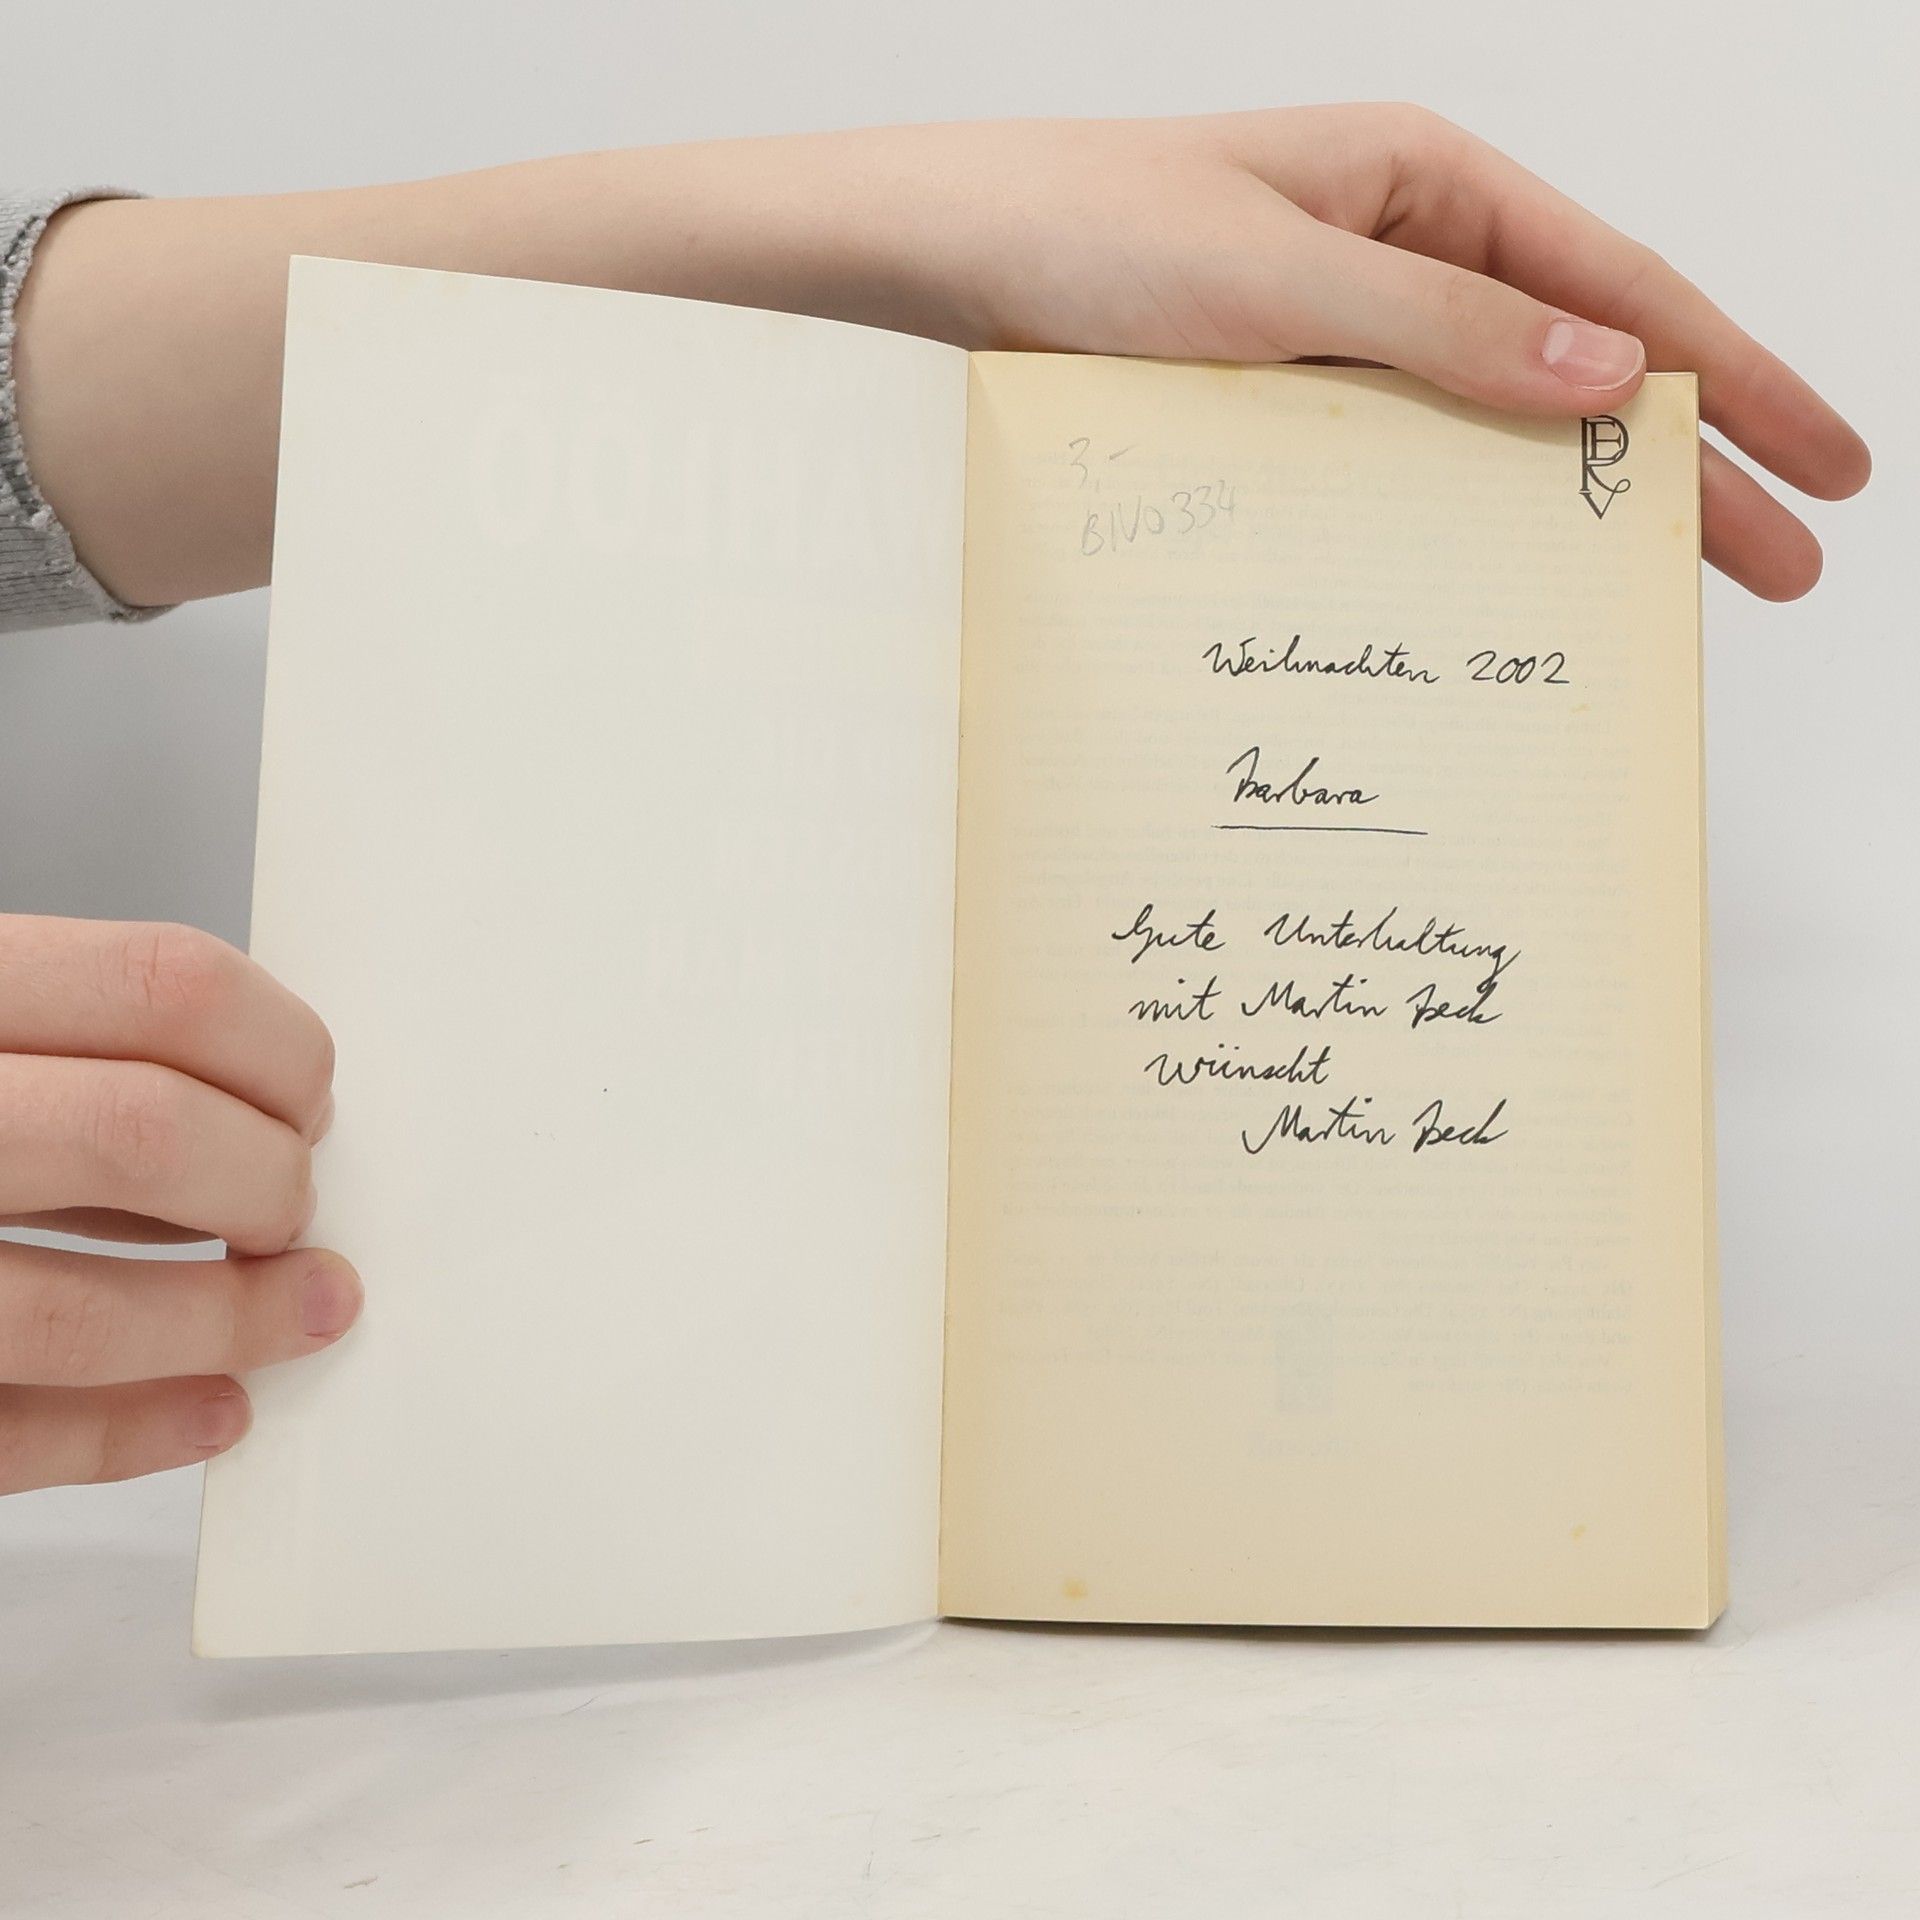 3,-
BIVO334
Weihnachten 2002
Barbara
Gute Unterhaltung
mit Martin Beck
wünscht
Martin Beck